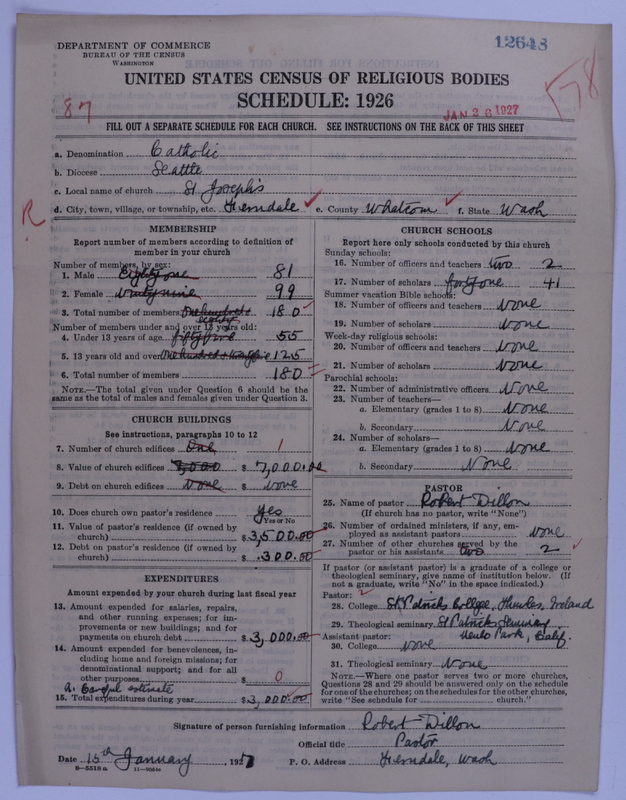 DEPARTMENT OF COMMERCE
BUREAU OF THE CENSUS
WASHINGTON
12643
UNITED STATES CENSUS OF RELIGIOUS BODIES
SCHEDULE: 1926
87
JAN 26 1927
178
FILL OUT A SEPARATE SCHEDULE FOR EACH CHURCH. SEE INSTRUCTIONS ON THE BACK OF THIS SHEET
a. Denomination Catholic
b. Diocese Seattle
c. Local name of church St Joseph's
d. City, town, village, or township, etc. Ferndale e. County Whatcom f. State Wash
R
MEMBERSHIP
Report number of members according to definition of
member in your church
Number of members, by sex:
1. Male Eighty one 81
2. Female ninety nine 99
3. Total number of members One hundred eighty 180
Number of members under and over 13 years old:
4. Under 13 years of age fifty five 55
5. 13 years old and over One hundred & twenty five 125
6. Total number of members 180
NOTE.—The total given under Question 6 should be the
same as the total of males and females given under Question 3.
CHURCH BUILDINGS
See instructions, paragraphs 10 to 12
7. Number of church edifices One 1
8. Value of church edifices 7,000 $ 7,000.00
9. Debt on church edifices None $ None
10. Does church own pastor's residence? Yes
Yes or No
11. Value of pastor's residence (if owned by
church) $ 3,500.00
12. Debt on pastor's residence (if owned by
church) $ 300.00
EXPENDITURES
Amount expended by your church during last fiscal year
13. Amount expended for salaries, repairs,
and other running expenses; for im-
provements or new buildings; and for
payments on church debt $ 3,000.00
14. Amount expended for benevolences, in-
cluding home and foreign missions; for
denominational support; and for all
other purposes $ 0
A. Careful estimate
15. Total expenditures during year $ 3,000.00
CHURCH SCHOOLS
Report here only schools conducted by this church
Sunday schools:
16. Number of officers and teachers two 2
17. Number of scholars forty one 41
Summer vacation Bible schools:
18. Number of officers and teachers None
19. Number of scholars None
Week-day religious schools:
20. Number of officers and teachers None
21. Number of scholars None
Parochial schools:
22. Number of administrative officers None
23. Number of teachers—
a. Elementary (grades 1 to 8) None
b. Secondary None
24. Number of scholars—
a. Elementary (grades 1 to 8) None
b. Secondary None
PASTOR
25. Name of pastor Robert Dillon
(If church has no pastor, write "None")
26. Number of ordained ministers, if any, em-
ployed as assistant pastors None
27. Number of other churches served by the
pastor or his assistants two 2
If pastor (or assistant pastor) is a graduate of a college or
theological seminary, give name of institution below. (If
not a graduate, write "No" in the space indicated.)
Pastor:
28. College St Patricks College, Thurles, Ireland
29. Theological seminary St Patricks Seminary
Assistant pastor: Menlo Park, Calif.
30. College None
31. Theological seminary None
NOTE.—Where one pastor serves two or more churches,
Questions 28 and 29 should be answered only on the schedule
for one of the churches; on the schedules for the other churches,
write "See schedule for church."
Signature of person furnishing information Robert Dillon
Official title Pastor
Date 15th January, 1927 P. O. Address Ferndale, Wash
8—5518a 11—9034a